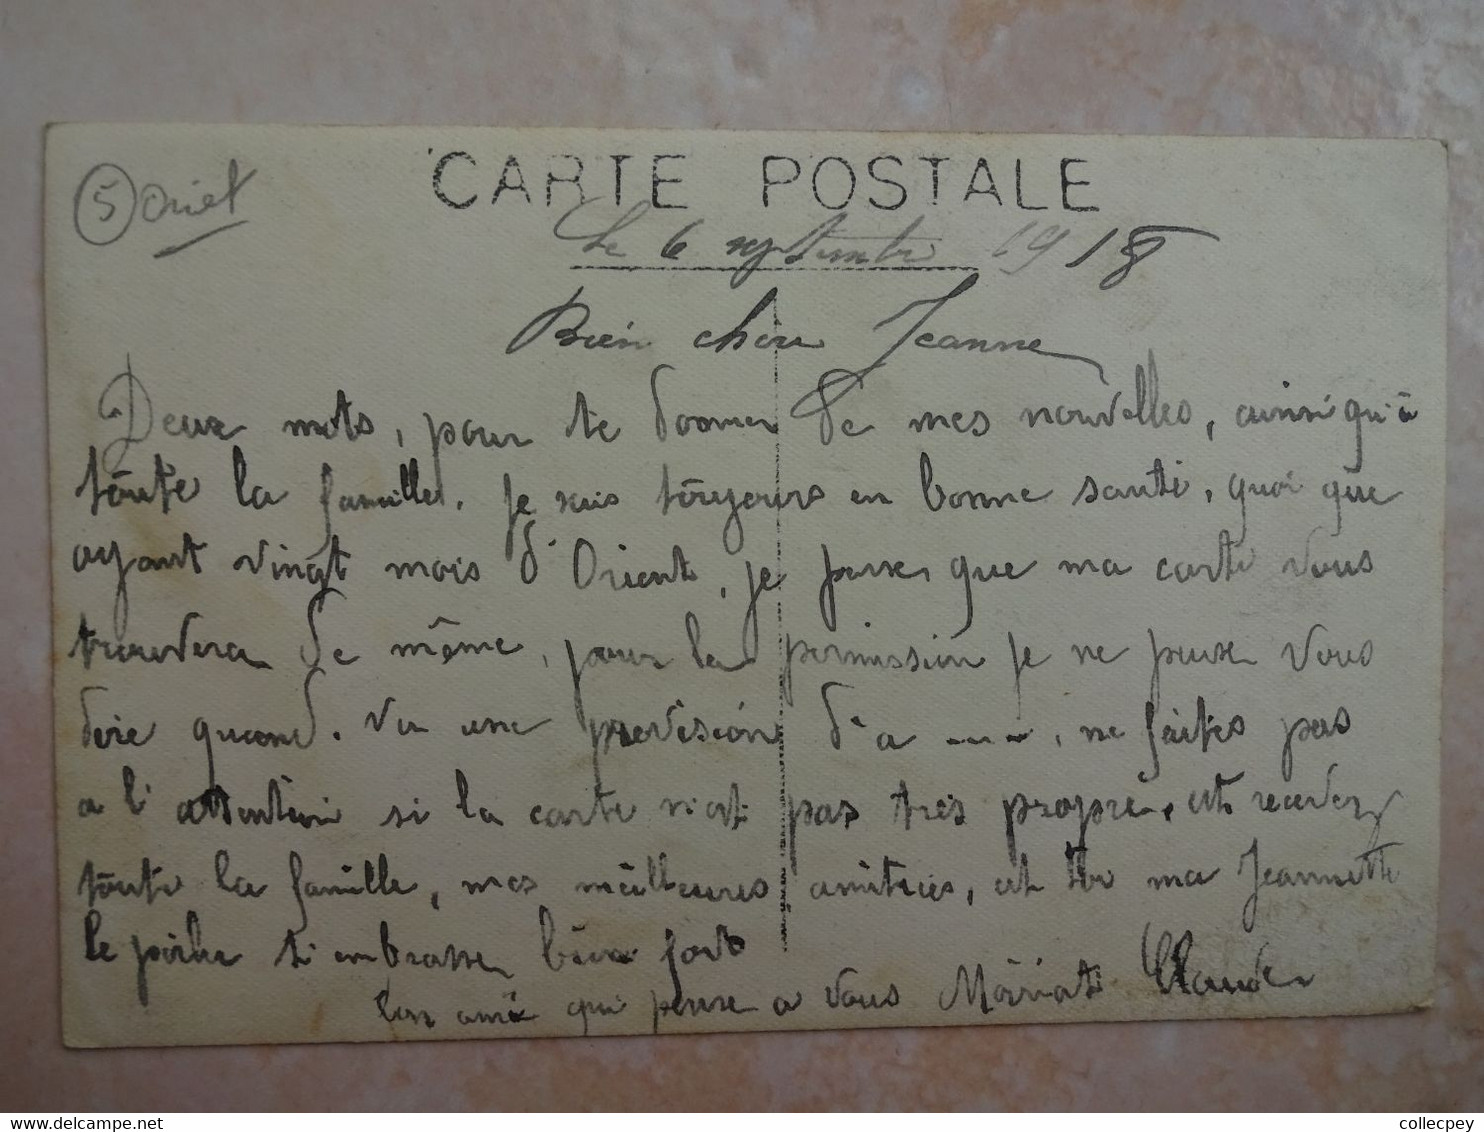 CARTE POSTALE
5 Oriet
Le 6 septembre 1918
Bien chere Jeanne
Deux mots, pour te donner de mes nouvelles, ainsi qu'à
toute la famille. Je suis toujours en bonne santé, quoi que
ayant vingt mois d'Orient, je pense que ma carte vous
trouvera de même, pour la permission je ne peux vous
dire quand. vu une prévision d'a ----, ne faites pas
a l'attention si la carte n'est pas très propre, et recevez
toute la famille, mes meilleures amitiés, et toi ma Jeannette
le poilu ti embrasse bien fort
Ton ami qui pense a vous Claude
www.delcampe.net
collecpey